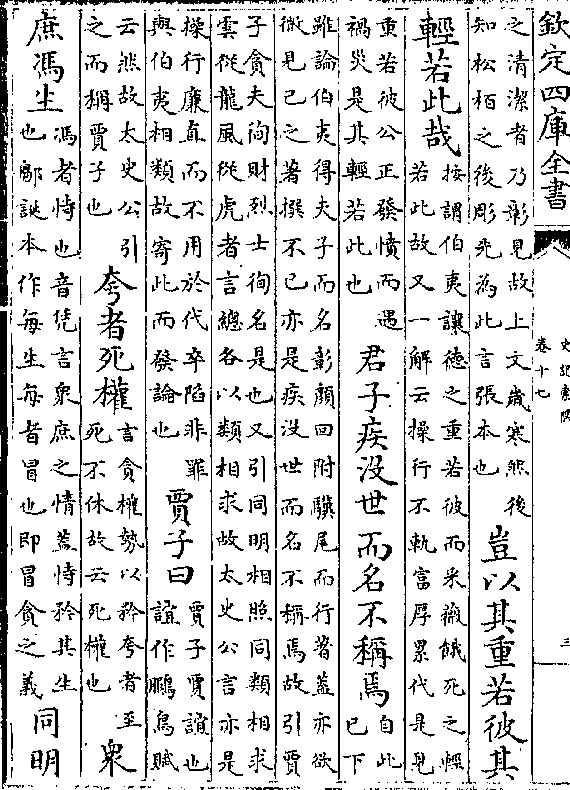 欽定四庫全書
史記索隱
卷十七
三
之清潔者乃彰見故上文歲寒然後
知松栢之後彫先為此言張本也
豈以其重若彼其
輕若此哉
按謂伯夷讓德之重若彼而采薇餓死之輕
若此故又一解云操行不軌富厚累代是見
重若彼公正發憤而遇
禍災是其輕若此也
君子疾没世而名不稱焉
自此
已下
雖論伯夷得夫子而名彰顏回附驥尾而行著蓋亦欲
微見已之著撰不已亦是疾没世而名不稱焉故引賈
子貪夫徇財烈士徇名是也又引同明相照同類相求
雲從龍風從虎者言總各以類相求故太史公言亦是
操行廉直而不用於代卒陷非罪
與伯夷相類故寄此而發論也
賈子曰
賈子賈誼也
誼作鵬鳥賦
云然故太史公引
之而稱賈子也
夸者死權
言貪權勢以矜夸者至
死不休故云死權也
衆
庶馮生
馮者恃也音凭言衆庶之情蓋恃矜其生
也鄒誕本作每生每者冒也即冒貪之義
同明